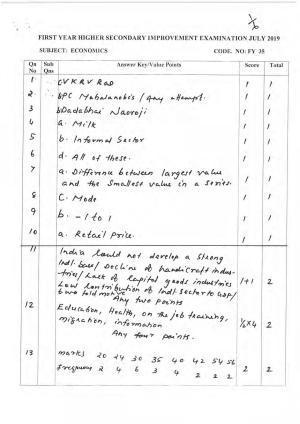 FIRST YEAR HIGHER SECONDARY IMPROVEMENT EXAMINATION JULY 2019
SUBJECT: ECONOMICS CODE. NO: FY 35
Qn No Sub Qns Answer Key/Value Points Score Total
1 CVKRV Rao 1 1
2 b PC Mahalanobis / Any attempt. 1 1
3 b Dadabhai Navroji 1 1
4 a. Milk 1 1
5 b. Informal Sector 1 1
6 d. All of these. 1 1
7 a. Difference between largest value
and the Smallest value in a series. 1 1
8 C. Mode 1 1
9 b. -1 to 1 1 1
10 a. Retail Price. 1 1
11 India Could not develop a Strong
Indl. base/ Decline of handicraft indus-
tries/ Lack of Capital goods industries 1+1 2
Low Contribution of Indl. Sector to GDP/
two fold motive
Any two points
12 Education, Health, on the job training,
migration, information ½x4 2
Any four points.
13 marks 20 24 30 35 40 42 54 56
frequency 2 4 6 3 4 2 2 2 2 2